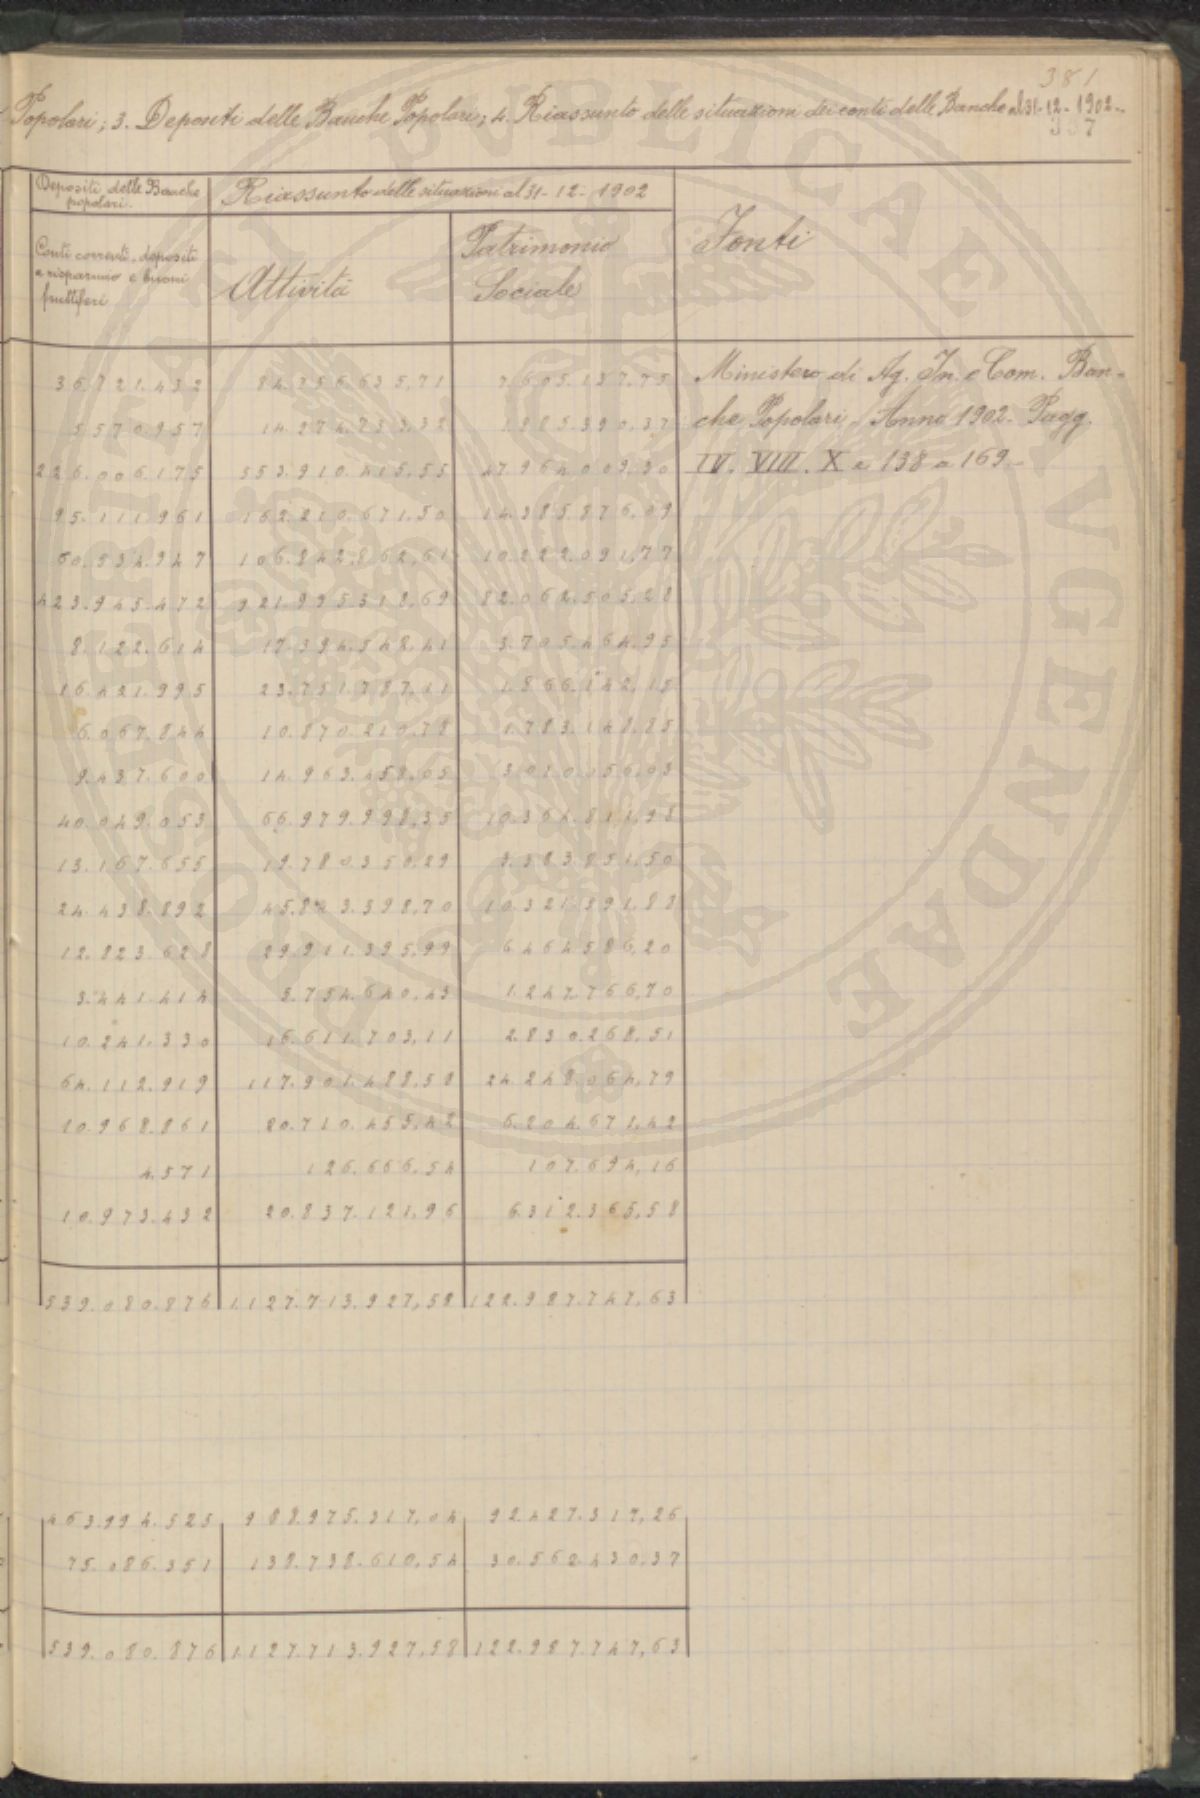 381
Popolari; 3. Depositi delle Banche Popolari; 4. Riassunto delle situazioni dei conti delle Banche al 31-12-1902-
Depositi delle Banche popolari.
Riassunto delle situazioni al 31-12-1902
Fonti
Conti correnti, depositi
a risparmio e buoni
fruttiferi
Attività
Patrimonio
Sociale
Ministero di Ag. In. e Com. Ban-
che Popolari - Anno 1902 - Pagg.
IV. VIII. X e 138 a 169-
36.721.432 84.256.635,71 7.605.137,75
5.570.957 14.274.733,32 1.885.390,37
226.006.175 553.910.415,55 47.964.009,30
95.111.961 162.210.671,50 14.385.876,09
60.534.947 106.842.862,61 10.222.091,77
423.945.472 921.995.318,69 82.062.505,28
8.122.614 17.394.548,41 3.705.464,95
16.421.995 23.751.787,11 1.866.142,15
6.067.844 10.870.210,78 1.783.148,85
9.437.600 14.963.458,05 3.010.056,03
40.049.053 66.979.998,35 10.364.811,98
13.167.655 19.780.350,29 3.383.851,50
24.438.892 45.843.398,70 10.321.391,88
12.823.628 29.911.395,99 6.464.586,20
3.441.414 5.754.640,43 1.247.766,70
10.241.330 16.611.703,11 2.830.268,51
64.112.919 117.901.488,58 24.248.064,79
10.968.861 20.710.455,42 6.204.671,42
4.571 126.666,54 107.694,16
10.973.432 20.837.121,96 6.312.365,58
539.080.876 1.127.713.927,58 122.987.747,63
463.994.525 988.975.317,04 92.427.317,26
75.086.351 138.738.610,54 30.562.430,37
539.080.876 1.127.713.927,58 122.987.747,63
PUBLICAE AVGENDAE PROSPERITATI